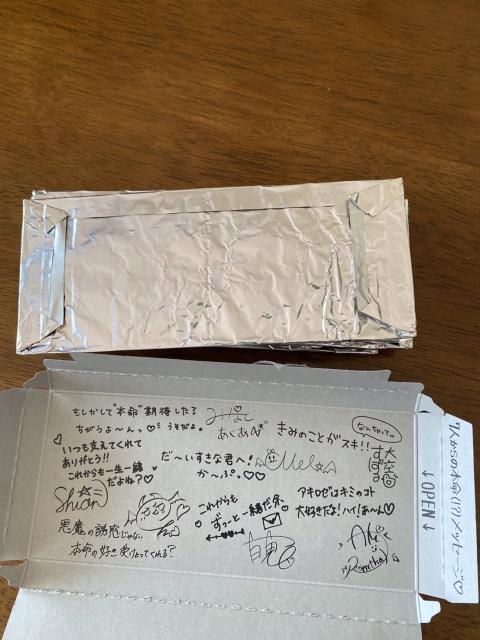 もしかして"本命"期待した?
ちがうよ〜んっ♡ うそだよ。
みなと
あくあ
きみのことがスキ!!
なんちゃって
大空
すばる
いつも支えてくれて
ありがとう!!
これからも一生一緒
だよね?♡
Shion
だ〜いすきな君へ!
か〜ぷ。♡♡
Mel
悪魔の誘惑じゃない
本命の好き受けとってくれる?
これからも
ずっと一緒だ余
アキロゼはキミのコト
大好きだよ!ハイ!あ〜ん♡
Aki
Rosenthal
↓OPEN↓
7人からの本命(!?)メッセージ♡